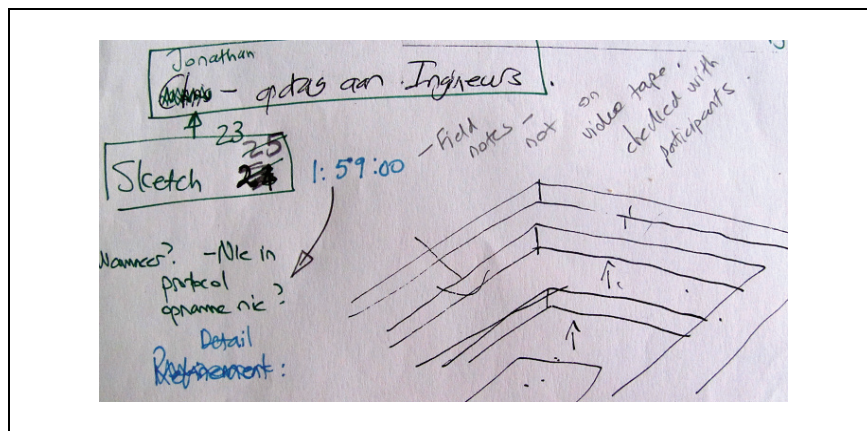 Jonathan
- qdas aan Ingineurs.
23
25
Sketch
1:59:00
-Field notes - not on
video tape.
checked with
participants.
Wanneer? -Nie in
protocol
opname nie?
Detail
Refinement: